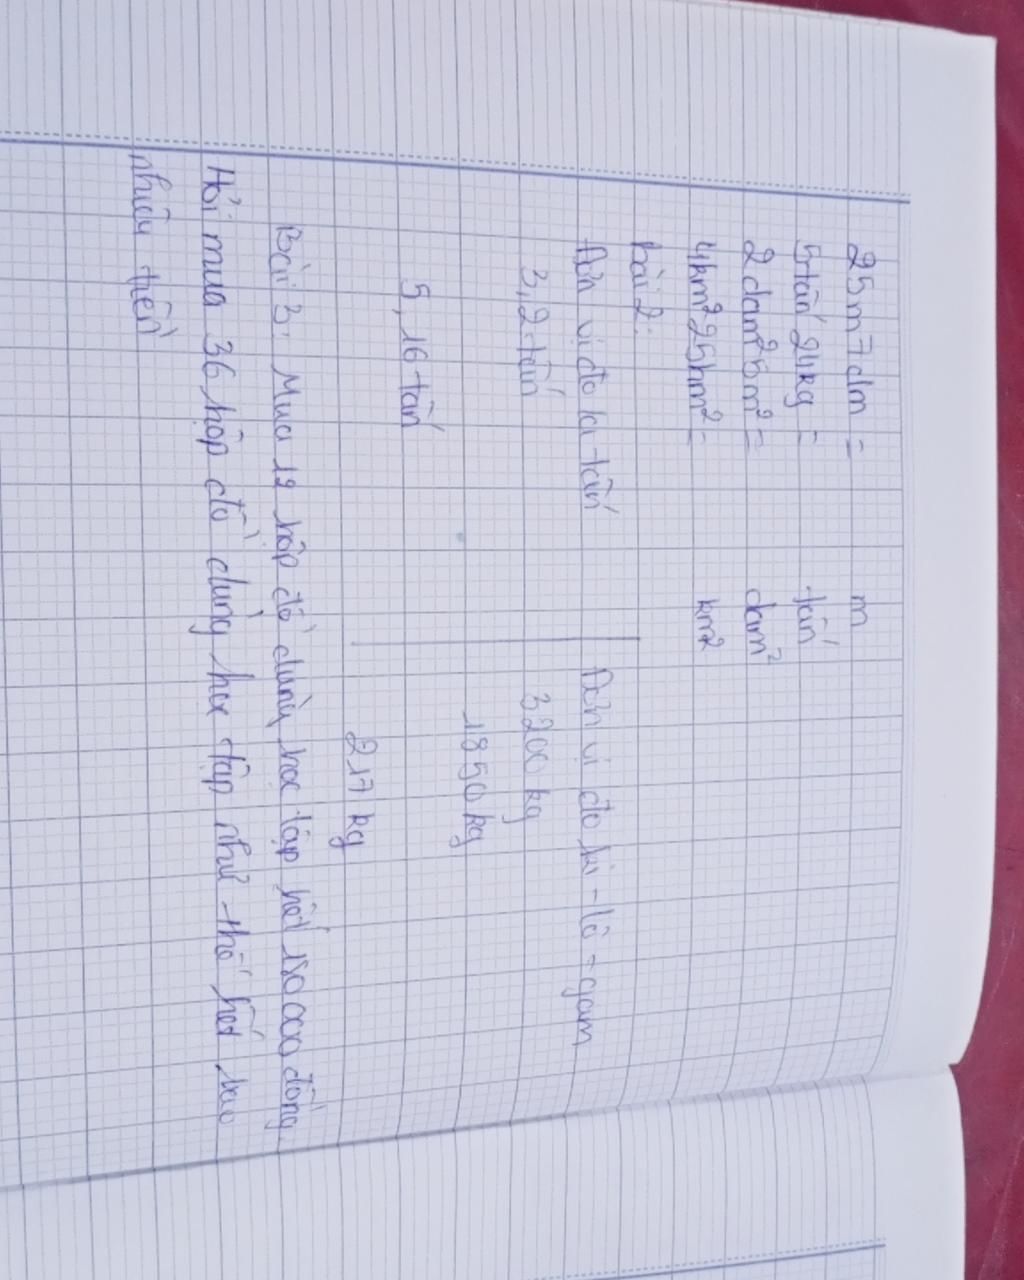 25m7dm = m
5 tấn 24kg = tấn
2dam²5m² = dam²
4km²25hm² = km²
bài 2:
Đơn vị đo là tấn Đơn vị đo ki-lô-gam
3,2 tấn 3200 kg
1850 kg
5,16 tấn
217 kg
Bài 3: Mua 12 hộp đồ dùng học tập hết 180 000 đồng.
Hỏi mua 36 hộp đồ dùng học tập như thế hết bao
nhiêu tiền